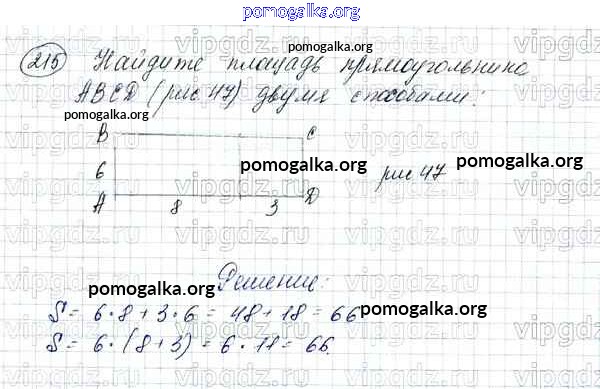 pomogalka.org
215 Найдите площадь прямоугольника
pomogalka.org
ABCD (рис 47) двумя способами:
pomogalka.org
B C
6 pomogalka.org рис 47 pomogalka.org
A 8 3 D
Решение:
pomogalka.org
S = 6 · 8 + 3 · 6 = 48 + 18 = 66 pomogalka.org
S = 6 · (8 + 3) = 6 · 11 = 66.